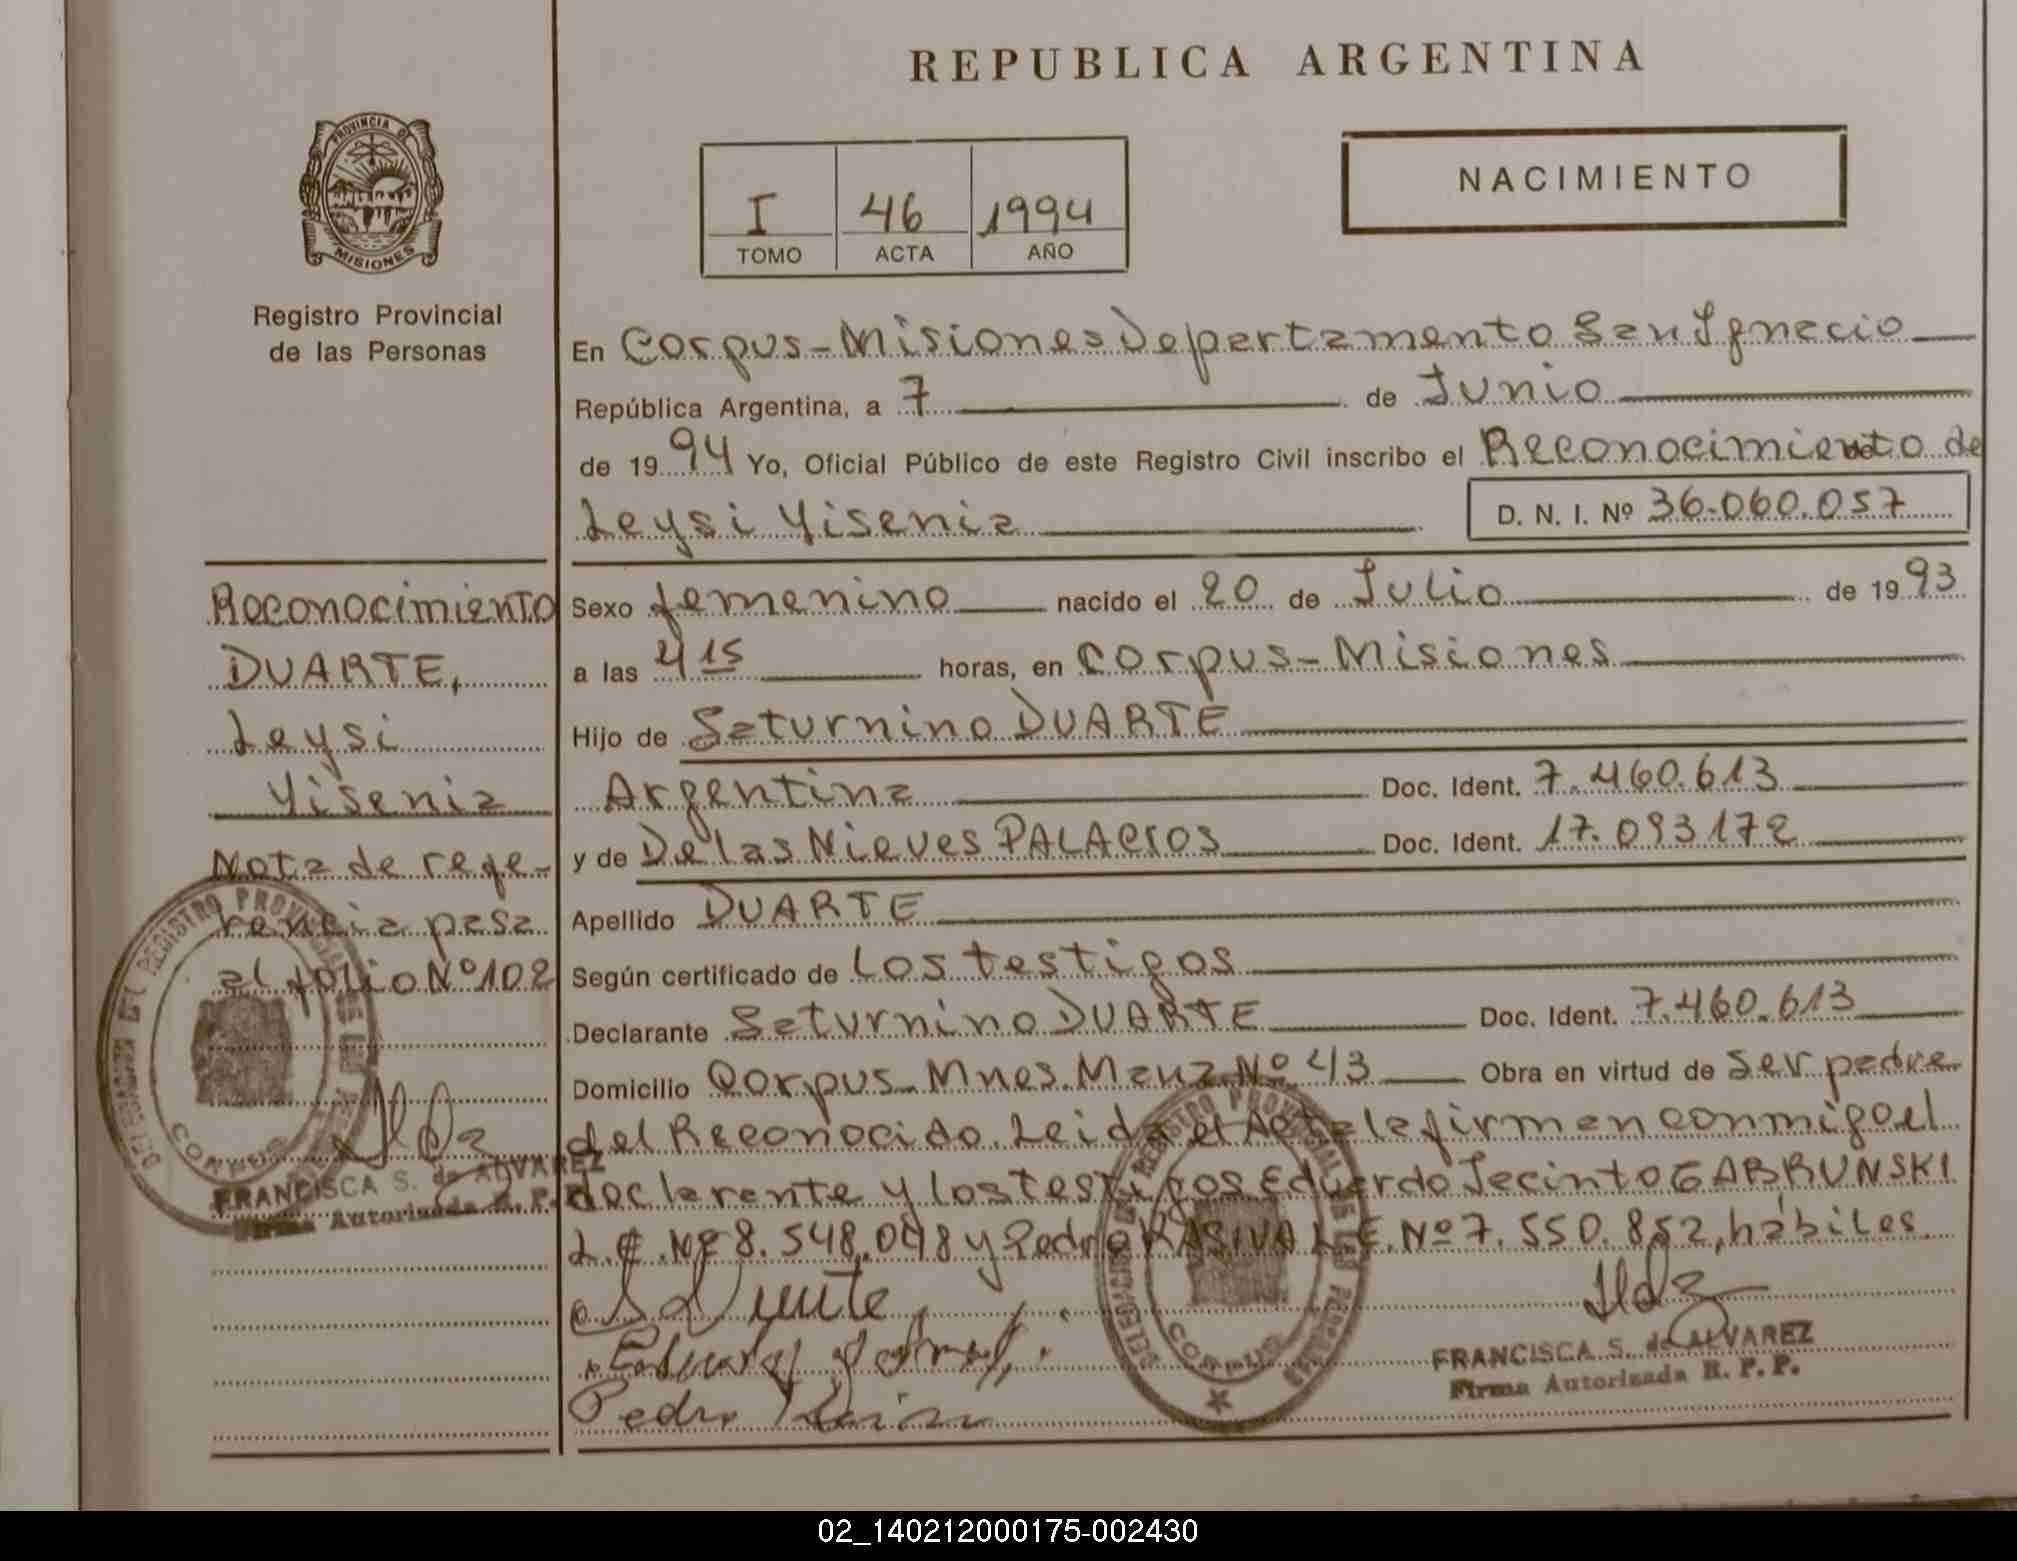 REPUBLICA ARGENTINA
PROVINCIA DE
MISIONES
Registro Provincial
de las Personas
I 46 1994
TOMO ACTA AÑO
NACIMIENTO
En Corpus-Misiones Departamento San Ignacio
República Argentina, a 7 de Junio
de 1994 Yo, Oficial Público de este Registro Civil inscribo el Reconocimiento de
Leysi Yisenia D. N. I. Nº 36.060.057
Sexo femenino nacido el 20 de Julio de 1993
a las 4 15 horas, en Corpus-Misiones
Hijo de Saturnino DUARTE
Argentina Doc. Ident. 7.460.613
y de De las Nieves PALACIOS Doc. Ident. 17.093172
Apellido DUARTE
Según certificado de Los testigos
Declarante Saturnino DUARTE Doc. Ident. 7.460.613
Domicilio Corpus-Mnes. Manz Nº 43 Obra en virtud de ser padre
del Reconocido. Leida el Acta la firman conmigo el
declarante y los testigos Eduardo Jacinto GABRUNSKI
L.E. Nº 8.548.048 y Pedro L.E. Nº 7.550.852, hábiles
Pedro
FRANCISCA S. de ALVAREZ
Firma Autorizada R. P. P.
Reconocimiento
DUARTE,
Leysi
Yisenia
Nota de refe-
rencia pasa
al folio Nº 102
FRANCISCA S. de ALVAREZ
Firma Autorizada R. P. P.
DELEGACION DEL REGISTRO PROVINCIAL DE LAS PERSONAS
CORPUS
DELEGACION DEL REGISTRO PROVINCIAL DE LAS PERSONAS
CORPUS
02_140212000175-002430